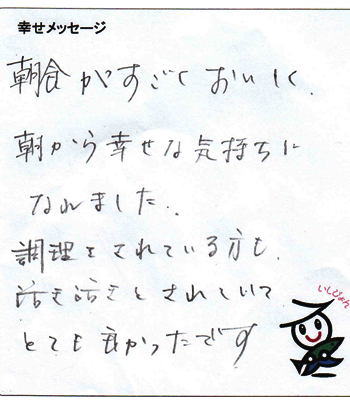 幸せメッセージ
朝食がすごくおいしく、
朝から幸せな気持ちに
なれました。
調理をされている方も、
活き活きとされていて
とても良かったです
いしぴょん